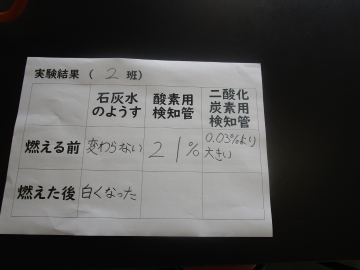 実験結果（ 2 班）
石灰水
のようす
酸素用
検知管
二酸化
炭素用
検知管
燃える前
変わらない
21%
0.03%より
大きい
燃えた後
白くなった